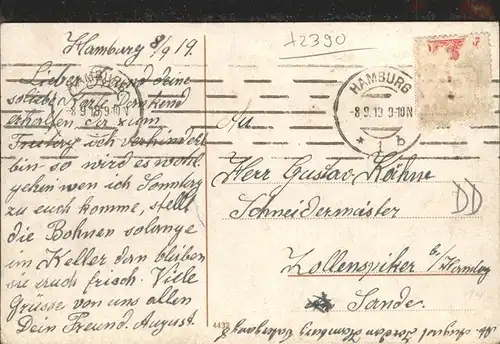 Hamburg 8/9 19.
A2390
Lieber Freund deine
soliebe Karte dankend
erhalten, da zum
Freitag ich verhindert
bin so wird es wohl
gehen wen ich Sonntag
zu euch komme, stellt
die Bohnen solange
im Keller dan bleiben
sie auch frisch. Viele
Grüsse von uns allen
Dein Freund. August.
HAMBURG
-8.9.19.9-10 V
HAMBURG
-8.9.19.9-10N
* 1 b
An
Herr Gustav Kähne
Schneidermeister
Zollenspiker b/Hambg
Sande.
DD
443
August Hamburg